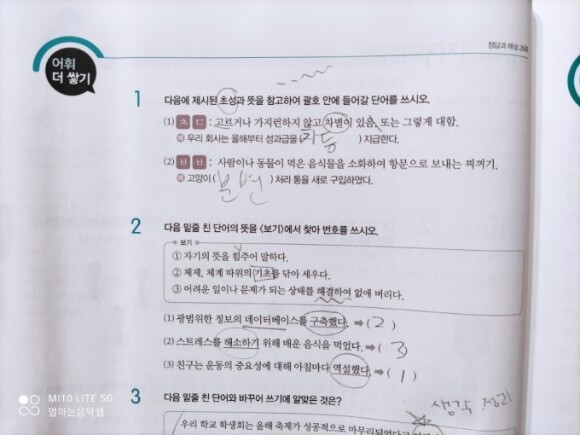 정답과 해설 268
어휘
더 쌓기
1 다음에 제시된 초성과 뜻을 참고하여 괄호 안에 들어갈 단어를 쓰시오.
(1) ㅊ ㄷ : 고르거나 가지런하지 않고 차별이 있음. 또는 그렇게 대함.
우리 회사는 올해부터 성과급을 (차등) 지급한다.
(2) ㅂ ㅂ : 사람이나 동물이 먹은 음식물을 소화하여 항문으로 보내는 찌꺼기.
고양이 (분변) 처리 통을 새로 구입하였다.
2 다음 밑줄 친 단어의 뜻을 <보기>에서 찾아 번호를 쓰시오.
보기
① 자기의 뜻을 힘주어 말하다.
② 체제, 체계 따위의 기초를 닦아 세우다.
③ 어려운 일이나 문제가 되는 상태를 해결하여 없애 버리다.
(1) 광범위한 정보의 데이터베이스를 구축했다. ➡ (2)
(2) 스트레스를 해소하기 위해 매운 음식을 먹었다. ➡ (3)
(3) 친구는 운동의 중요성에 대해 아침마다 역설했다. ➡ (1)
생각 정리
3 다음 밑줄 친 단어와 바꾸어 쓰기에 알맞은 것은?
우리 학교 학생회는 올해 축제가 성공적으로 마무리되었다고
MI 10 LITE 5G
엄마는음악샘